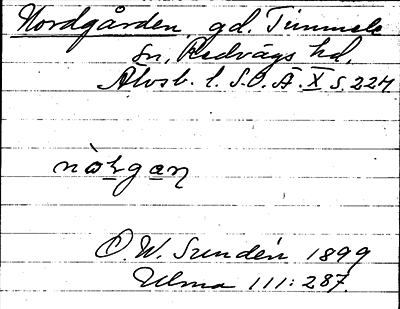 Nordgården, gd. Timmele
sn, Redvägs hd,
Älvsb. l. S.O.Ä. X s. 224
nòrgan
O. W. Sundén 1899
Ulma 111: 287.